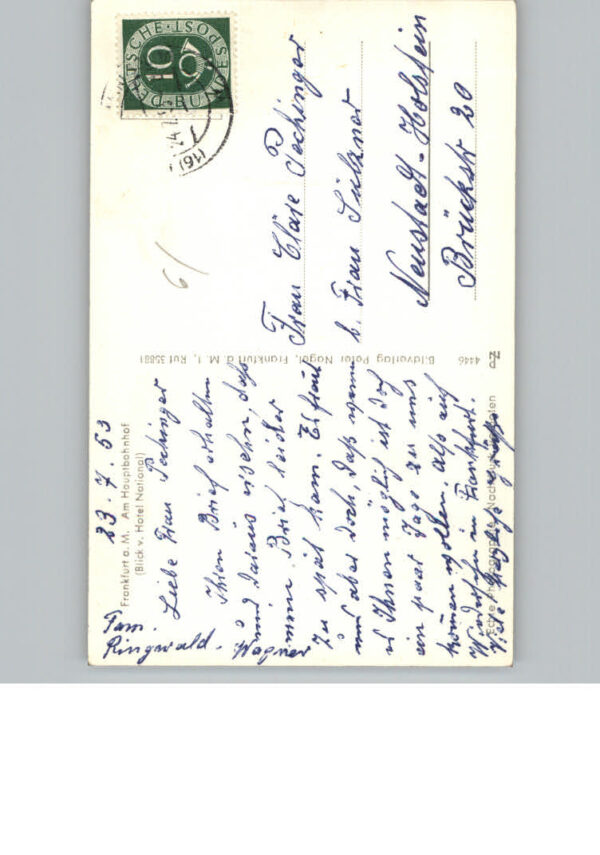 Frankfurt a. M., Am Hauptbahnhof
(Blick v. Hotel National)
23.7.53
Liebe Frau Pechinger
Ihren Brief erhalten
und daraus ersehn, daß
mein Brief leider
zu spät kam. Es freut
uns aber doch, daß wenn
es Ihnen möglich ist doch
ein paar Tage zu uns
kommen wollen, also auf
Wiedersehn in Frankfurt.
Herzliche Grüße
Fam.
Ringwald - Wagner
4446 Bildverlag Peter Nagel, Frankfurt a. M. 1, Ruf 35881
DEUTSCHE BUNDESPOST
10
(16)
6/
Frau Cläre Pechinger
b. Frau Sülzner
Neustadt - Holstein
Brückstr 20